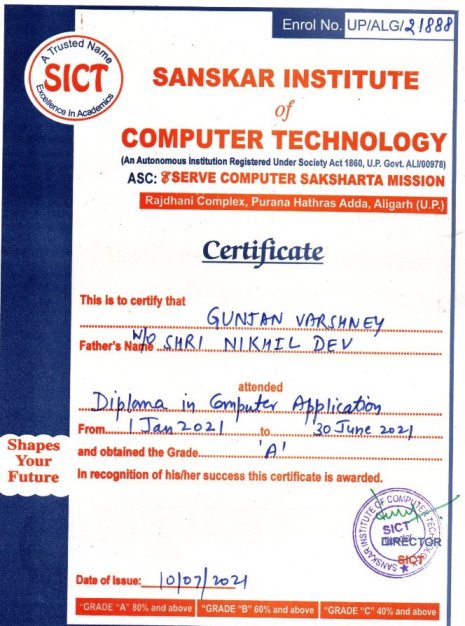 Enrol No. UP/ALG/21888
A Trusted Name
SICT
Excellence In Academics
SANSKAR INSTITUTE
of
COMPUTER TECHNOLOGY
(An Autonomous Institution Registered Under Society Act 1860, U.P. Govt. ALI/00978)
ASC: SERVE COMPUTER SAKSHARTA MISSION
Rajdhani Complex, Purana Hathras Adda, Aligarh (U.P.)
Certificate
This is to certify that
GUNJAN VARSHNEY
Father's Name W/O SHRI NIKHIL DEV
attended
Diploma in Computer Application
From 1 Jan 2021 to 30 June 2021
and obtained the Grade 'A'
In recognition of his/her success this certificate is awarded.
Shapes
Your
Future
SANSKAR INSTITUTE OF COMPUTER TECHNOLOGY
SICT
DIRECTOR
SICT
Date of Issue: 10/07/2021
"GRADE "A" 80% and above "GRADE "B" 60% and above "GRADE "C" 40% and above